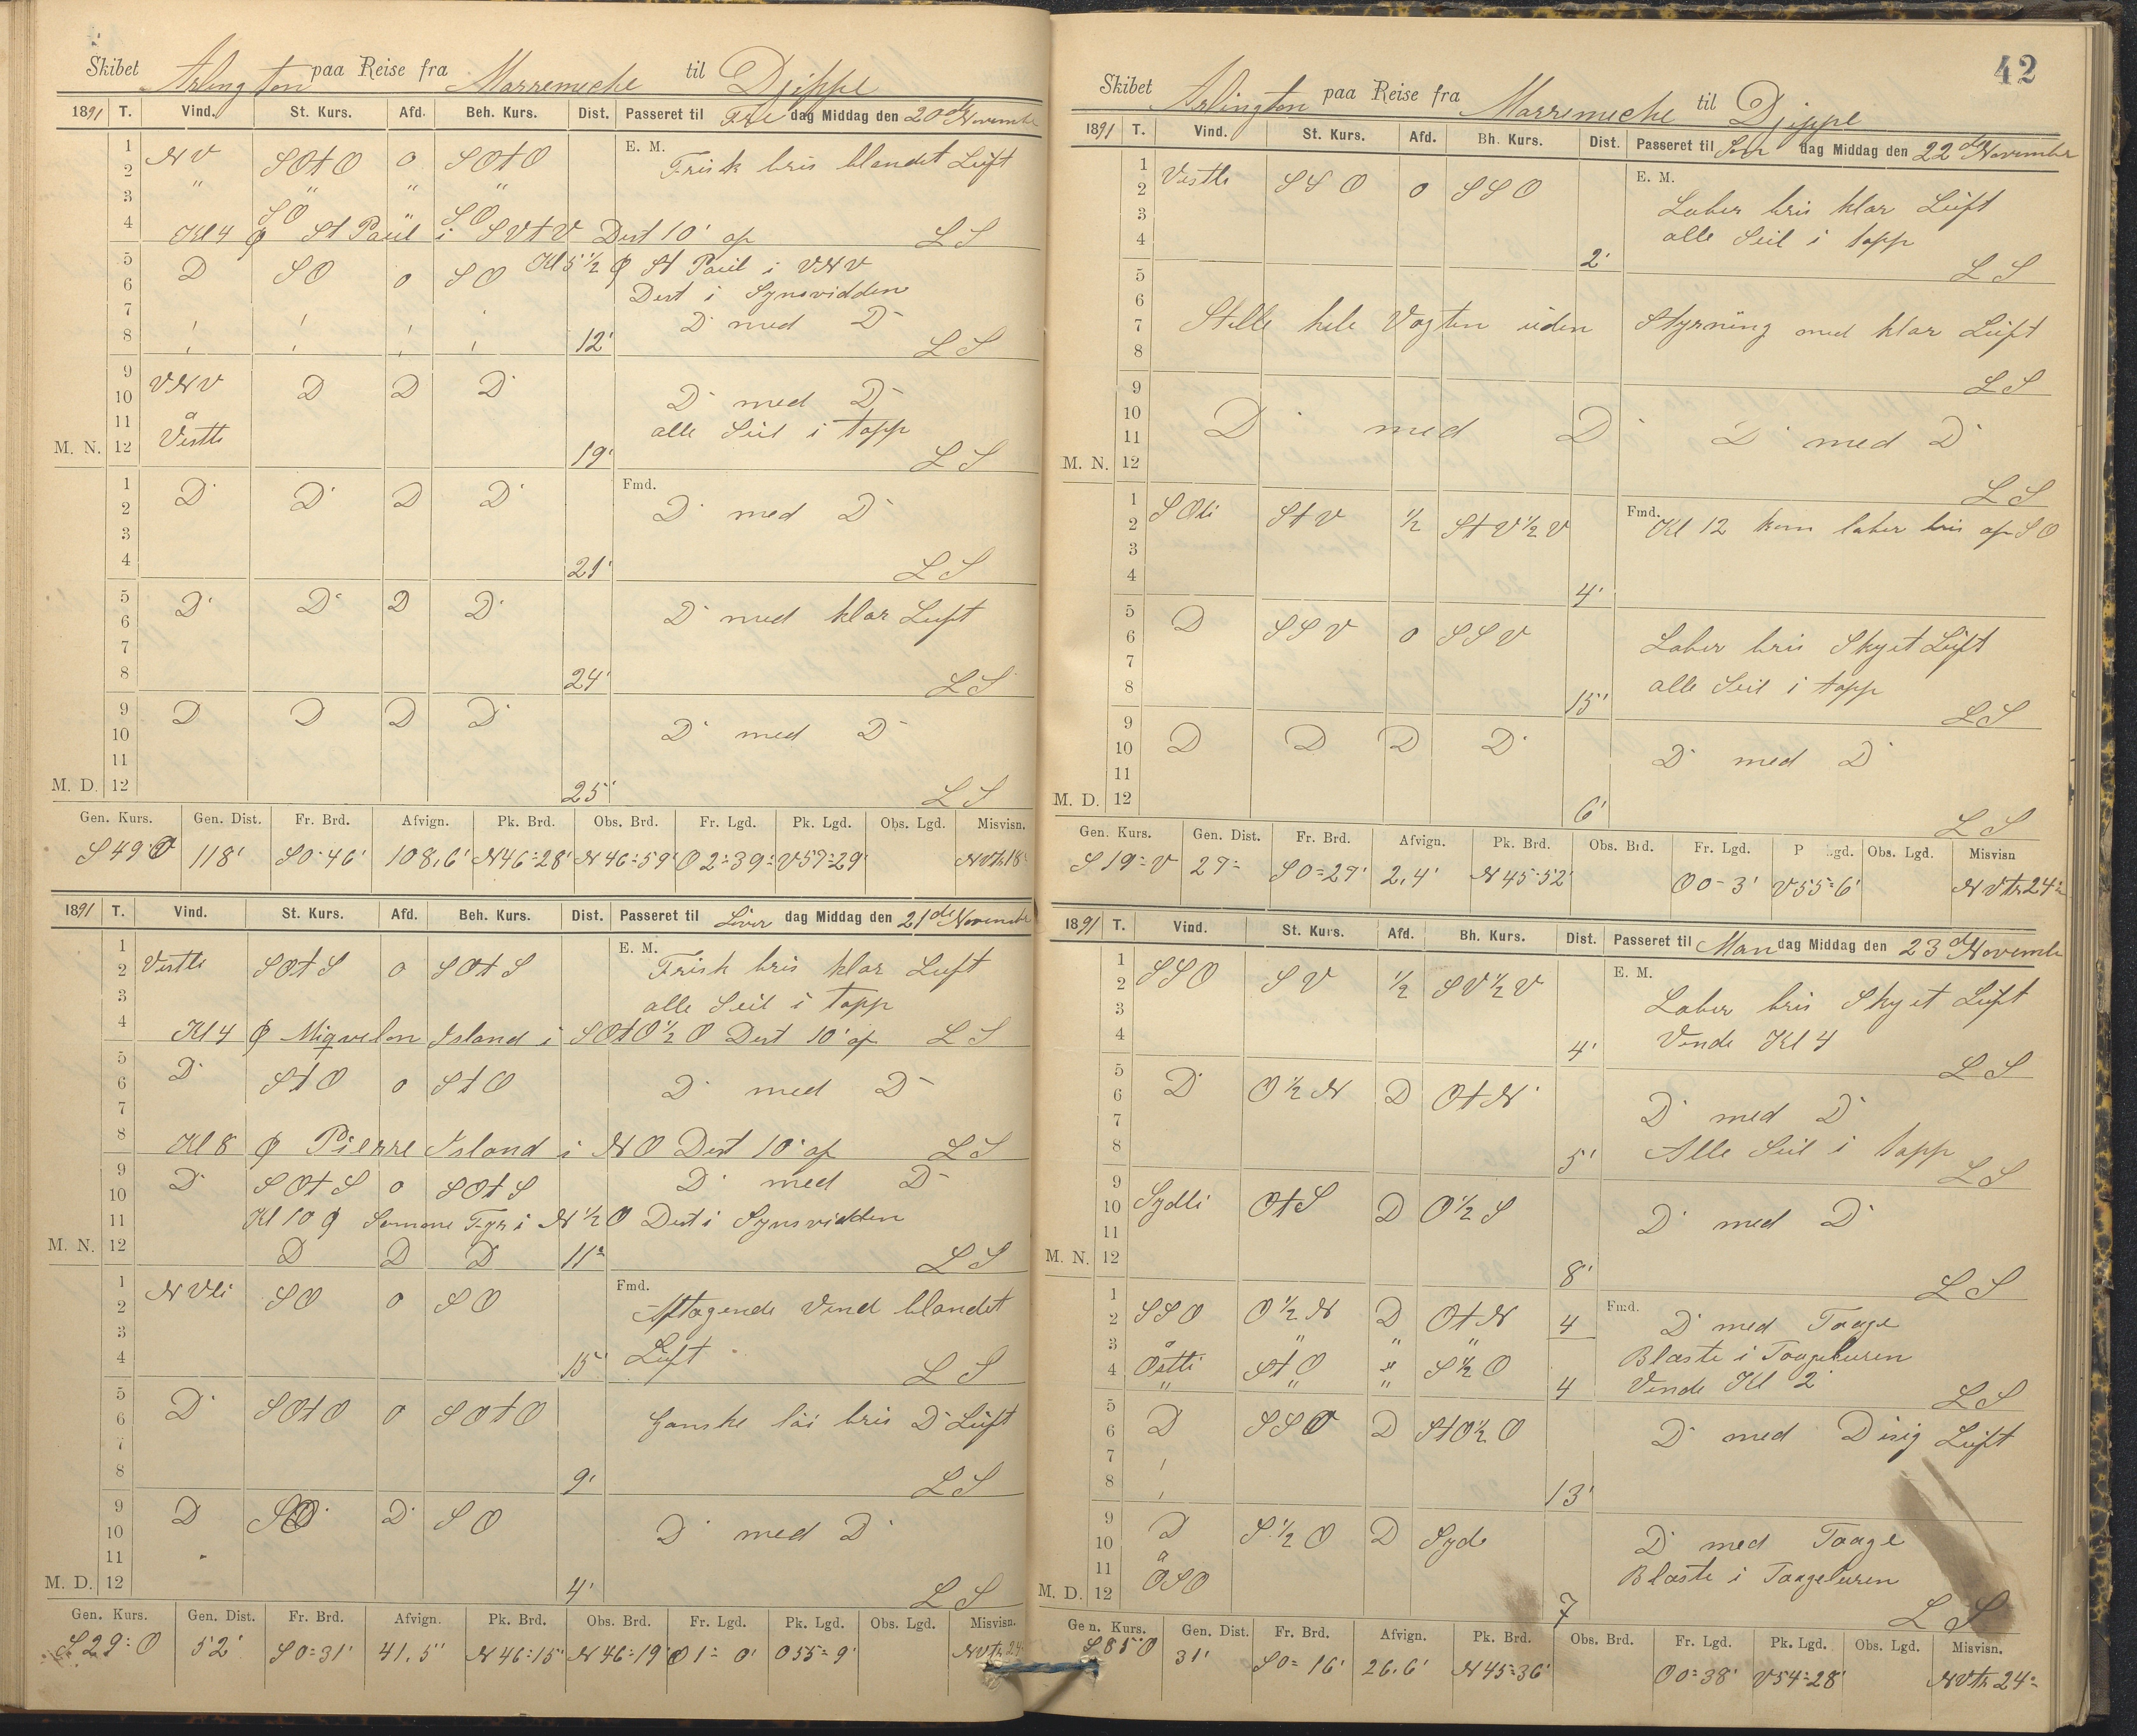 Skibet Arlington paa Reise fra Marremiche til Djippe
1891 T. Vind. St. Kurs. Afd. Beh. Kurs. Dist. Passeret til Fre dag Middag den 20de November
1
2 NV SOtO 0 SOtO E. M. Frisk bris blandet Luft
3 " " " "
4 SO " SO
Kl 4 ϕ St Paul i SVtV Dist 10' af LS
5 D SO 0 SO Kl 5½ ϕ St Paul i VNV
6 Dist i Synsvidden
7 D med D
8 12' LS
9
10 VNV D D D D med D
11 å alle Seil i topp
M. N. 12 Vestli 19' LS
1 Fmd.
2 D D D D D med D
3
4 21' LS
5
6 D D D D D med klar Luft
7
8 24' LS
9
10 D D D D D med D
11
M. D. 12 25' LS
Gen. Kurs. Gen. Dist. Fr. Brd. Afvign. Pk. Brd. Obs. Brd. Fr. Lgd. Pk. Lgd. Obs. Lgd. Misvisn.
S 49° O 118' S 0°46' 108,6' N 46°28' N 46°59' O 2°39' V 57°29' NVtr 18°
1891 T. Vind. St. Kurs. Afd. Beh. Kurs. Dist. Passeret til Löver dag Middag den 21de November
1 E. M.
2 Vestli SOtS 0 SOtS Frisk bris klar Luft
3 alle Seil i topp
4 Kl 4 ϕ Miqvelon Island i SOtO½O Dist 10' af LS
5
6 D StO 0 StO D med D
7
8 Kl 8 ϕ Pierre Island i NO Dist 10' af LS
9
10 D SOtS 0 SOtS D med D
11 Kl 10 ϕ Fyr i N½O Dist i Synsvidden
M. N. 12 D D D 11' LS
1 Fmd.
2 NVli SO 0 SO Aftagende Vind blandet
3
4 15' Luft LS
5
6 D SOtO 0 SOtO Ganske löi bris D Luft
7
8 9' LS
9
10 D SO D SO D med D
11
M. D. 12 4' LS
Gen. Kurs. Gen. Dist. Fr. Brd. Afvign. Pk. Brd. Obs. Brd. Fr. Lgd. Pk. Lgd. Obs. Lgd. Misvisn.
S 29° O 52' S 0°31' 41,5' N 46°15' N 46°19' O 1° 0' O 55°9' NVtr 24°
42
Skibet Arlington paa Reise fra Marremiche til Djippe
1891 T. Vind. St. Kurs. Afd. Bh. Kurs. Dist. Passeret til Søn dag Middag den 22de November
1 E. M.
2 Vestli SSO 0 SSO Laber bris klar Luft
3 alle Seil i topp
4 2' LS
5
6
7 Stille hele Vagten uden Styrning med klar Luft
8 LS
9
10 D med D D med D
11
M. N. 12 LS
1 Fmd.
2 SOli StV ½ StV½V Kl 12 kom laber bris af SO
3
4 4'
5
6 D SSV 0 SSV Laber bris Skyet Luft
7 alle Seil i topp
8 15' LS
9
10 D D D D D med D
11
M. D. 12 6' LS
Gen. Kurs. Gen. Dist. Fr. Brd. Afvign. Pk. Brd. Obs. Brd. Fr. Lgd. P Lgd. Obs. Lgd. Misvisn
S 19° V 27' S 0°27' 2,4' N 45°52' O 0° 3' V 55°6' NVtr 24°
1891 T. Vind. St. Kurs. Afd. Bh. Kurs. Dist. Passeret til Man dag Middag den 23de November
1 E. M.
2 SSO SV ½ SV½V Laber bris Skyet Luft
3 Vende Kl 4
4 4' LS
5
6 D O½N D OtN D med D
7
8 5' Alle Seil i topp LS
9
10 Sydli OtS D O½S D med D
11
M. N. 12 8' LS
1 Fmd.
2 SSO O½N D OtN 4 D med Taage
3 å " " " Blæste i Taageluren
4 Östli StO " S½O 4 Vende Kl 2 LS
5 " " "
6 D SSO D StO½O D med Disig Luft
7
8 13'
9
10 D S½O D Syd D med Taage
11 å Blæste i Taageluren
M. D. 12 OSO 7 LS
Gen. Kurs. Gen. Dist. Fr. Brd. Afvign. Pk. Brd. Obs. Brd. Fr. Lgd. Pk. Lgd. Obs. Lgd. Misvisn.
S 85° O 31' S 0° 16' 26,6' N 45°36' O 0°38' V 54°28' NVtr 24°